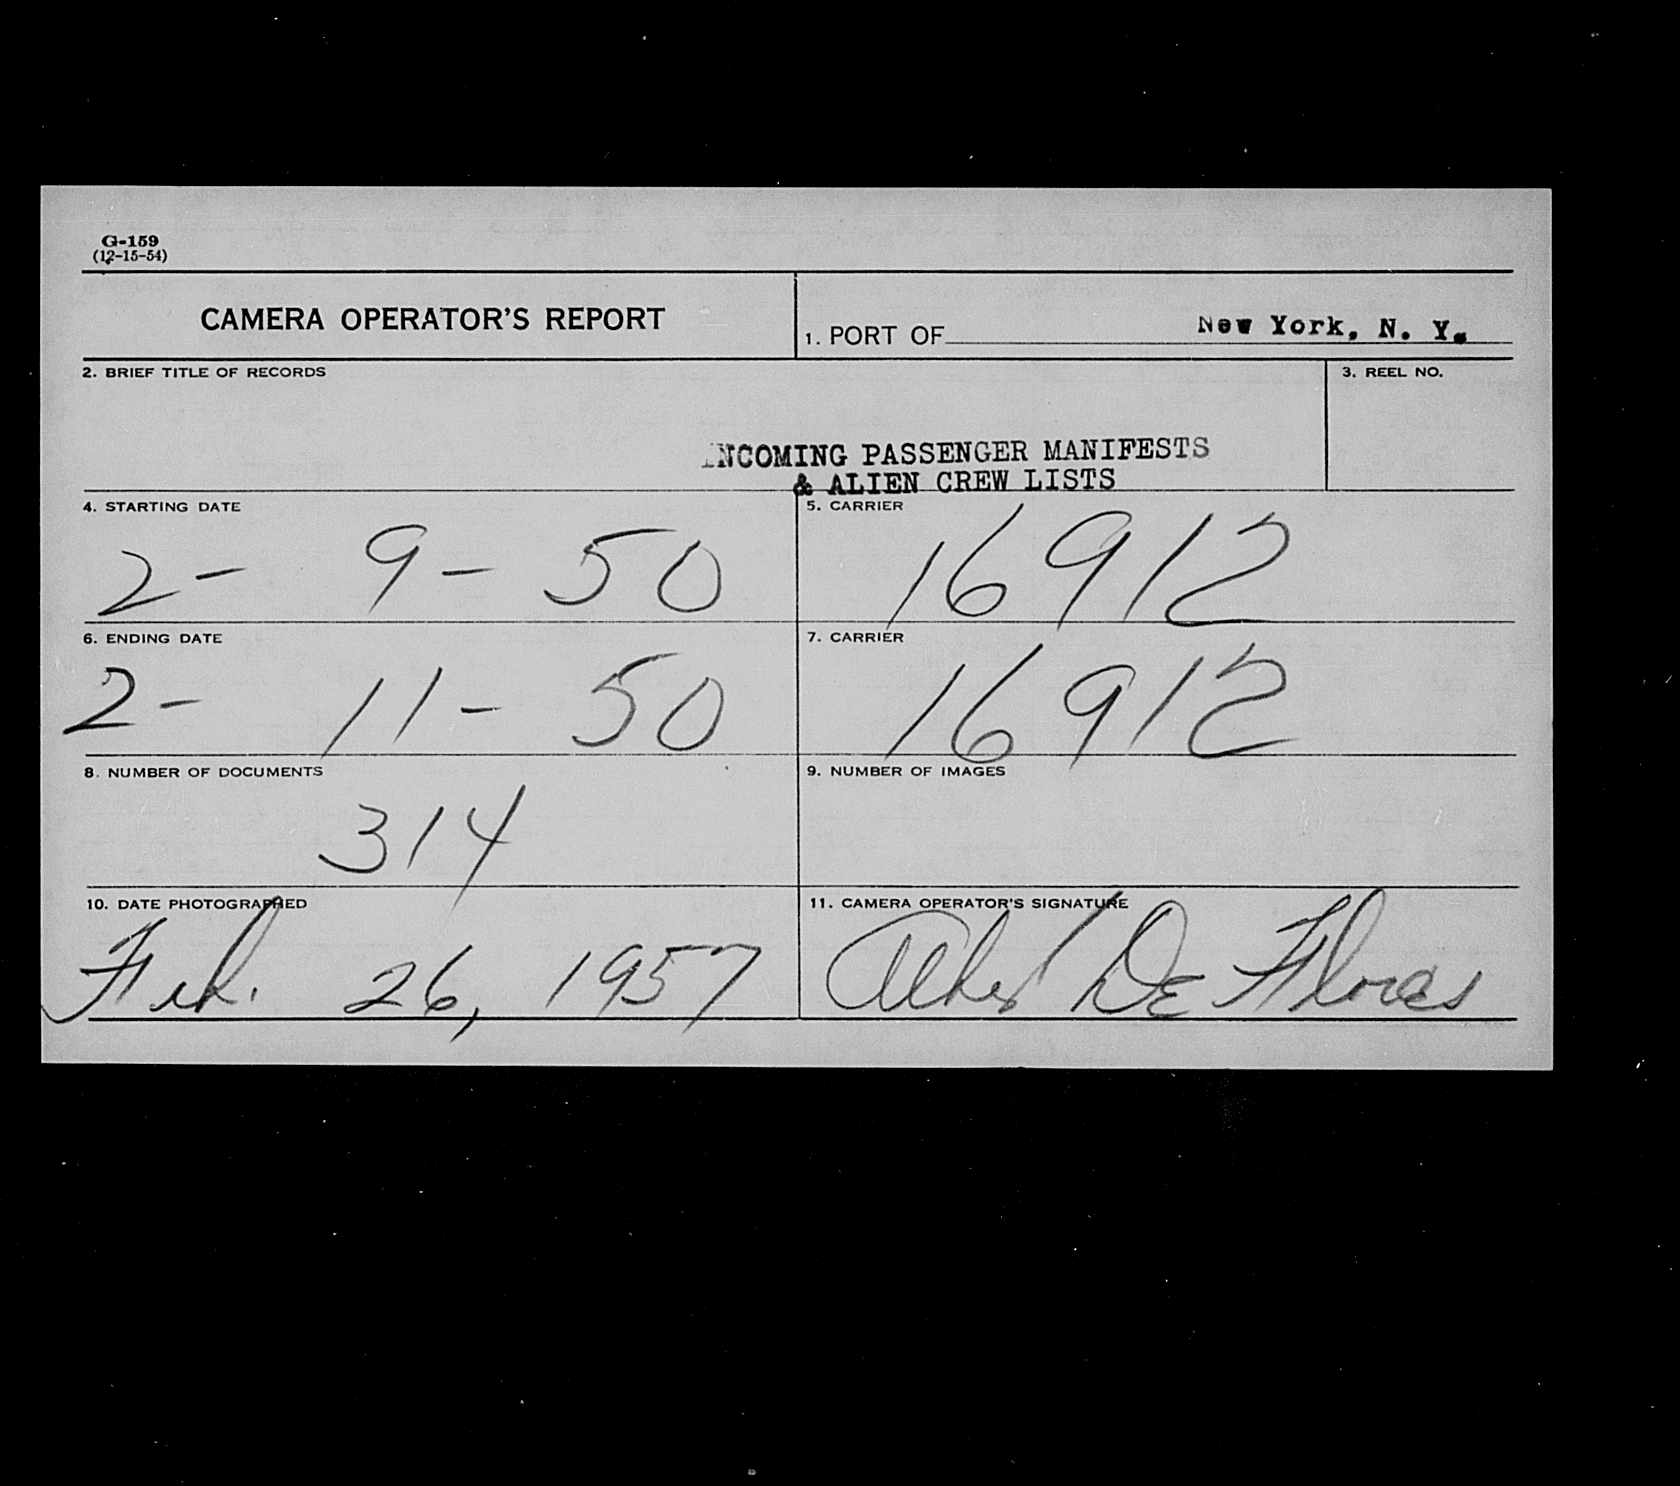 G-159
(12-15-54)
CAMERA OPERATOR'S REPORT
1. PORT OF New York, N. Y.
2. BRIEF TITLE OF RECORDS
3. REEL NO.
INCOMING PASSENGER MANIFESTS
& ALIEN CREW LISTS
4. STARTING DATE
2- 9- 50
5. CARRIER
16912
6. ENDING DATE
2- 11- 50
7. CARRIER
16912
8. NUMBER OF DOCUMENTS
314
9. NUMBER OF IMAGES
10. DATE PHOTOGRAPHED
Feb. 26, 1957
11. CAMERA OPERATOR'S SIGNATURE
De Flores